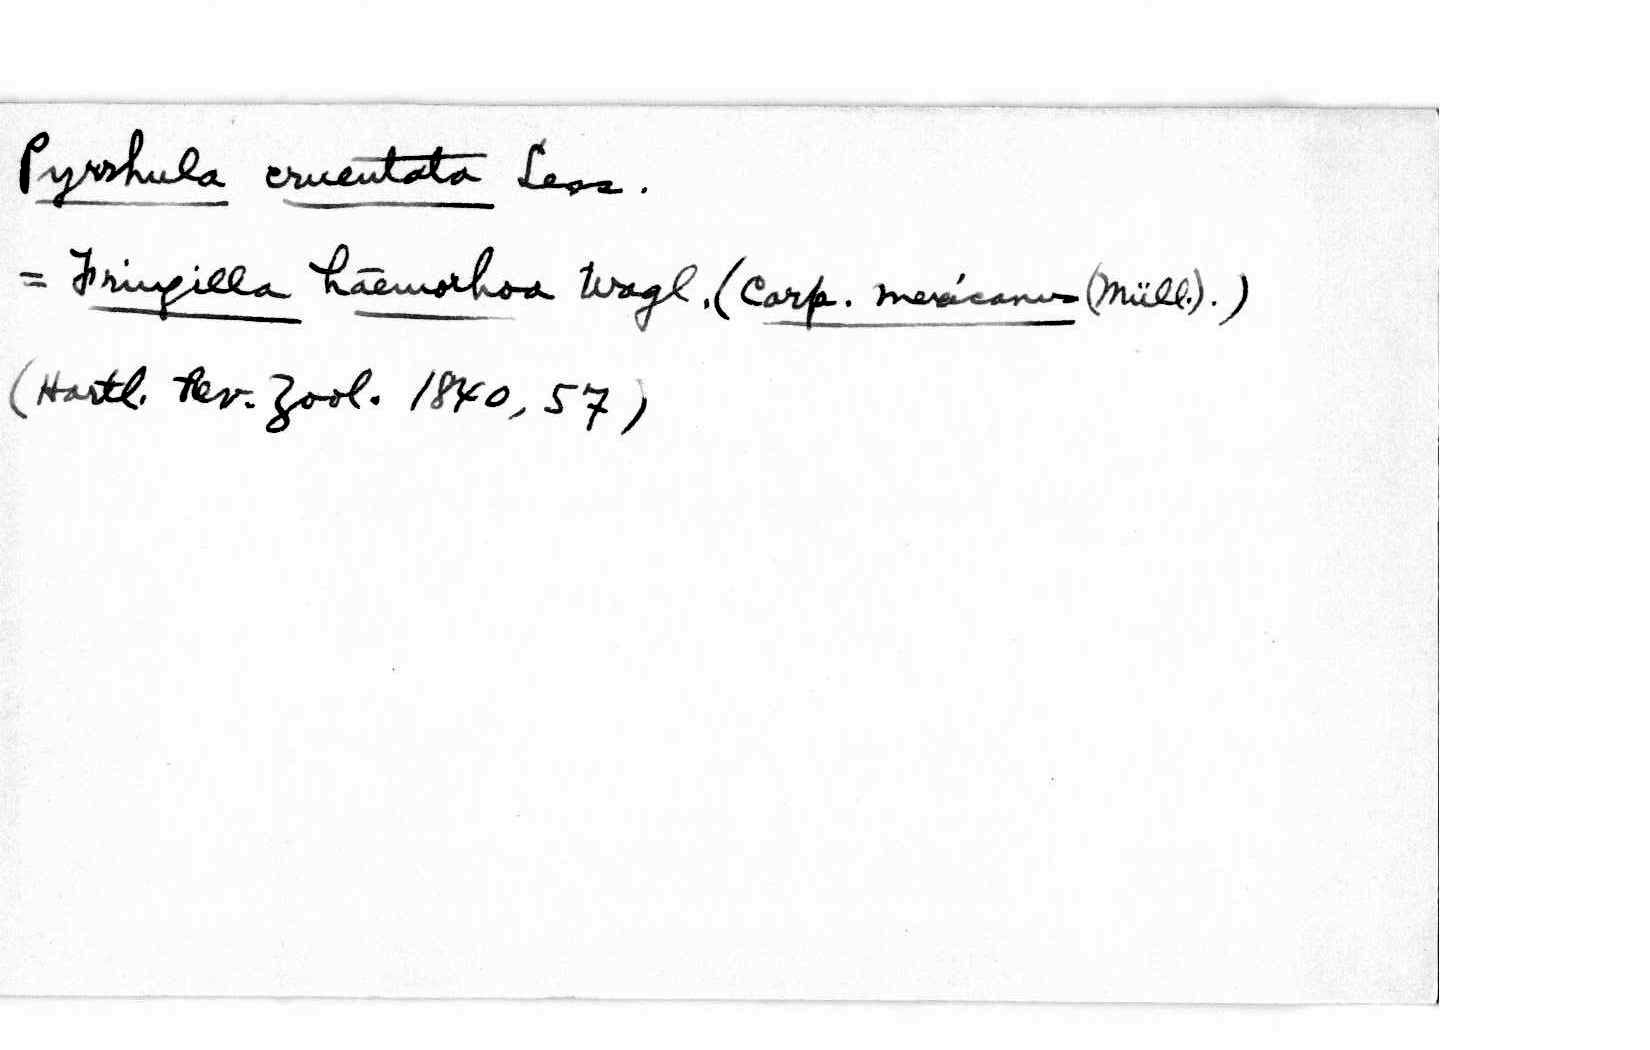 Pyrrhula cruentata Less.
= Fringilla haemorhoa Wagl. (Carp. mexicanus (Müll.).)
(Hartl. Rev. Zool. 1840, 57)